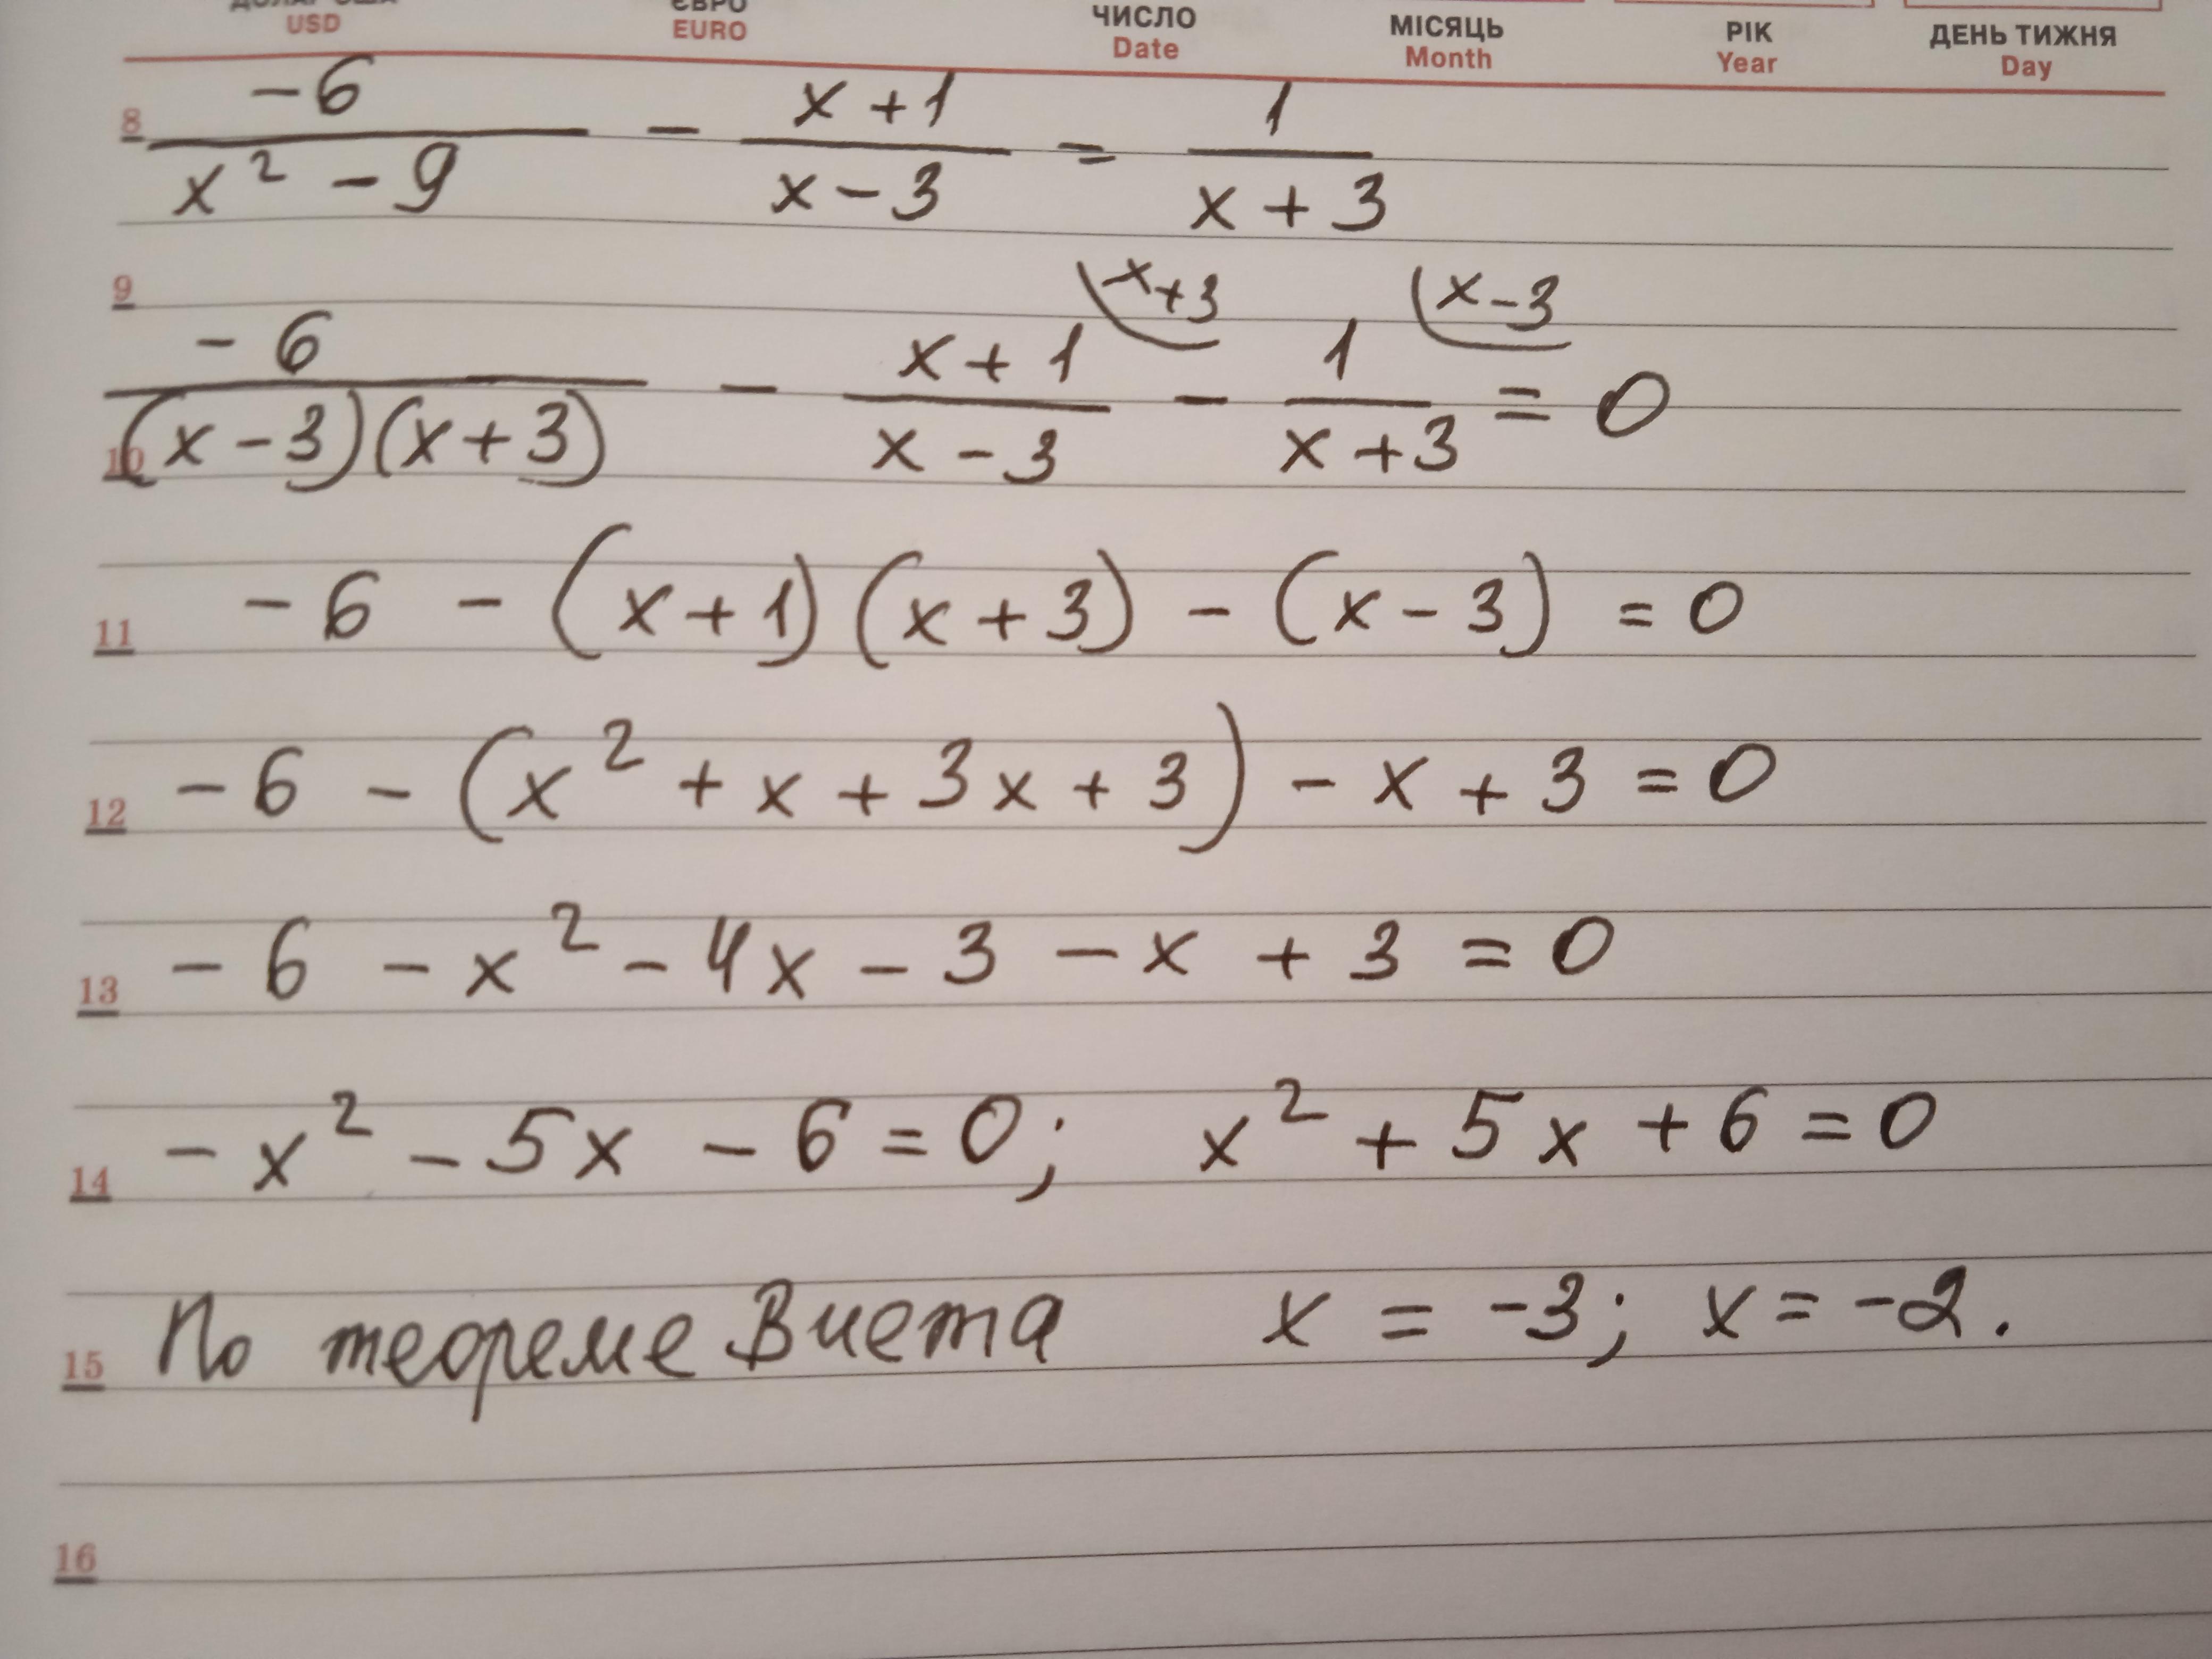 USD EURO ЧИСЛО Date МІСЯЦЬ Month РІК Year ДЕНЬ ТИЖНЯ Day
8 -6/(x² - 9) - (x+1)/(x-3) = 1/(x+3)
9 x+3 x-3
10 -6/((x-3)(x+3)) - (x+1)/(x-3) - 1/(x+3) = 0
11 -6 - (x+1)(x+3) - (x-3) = 0
12 -6 - (x² + x + 3x + 3) - x + 3 = 0
13 -6 - x² - 4x - 3 - x + 3 = 0
14 -x² - 5x - 6 = 0; x² + 5x + 6 = 0
15 По теореме Виета x = -3; x = -2.
16